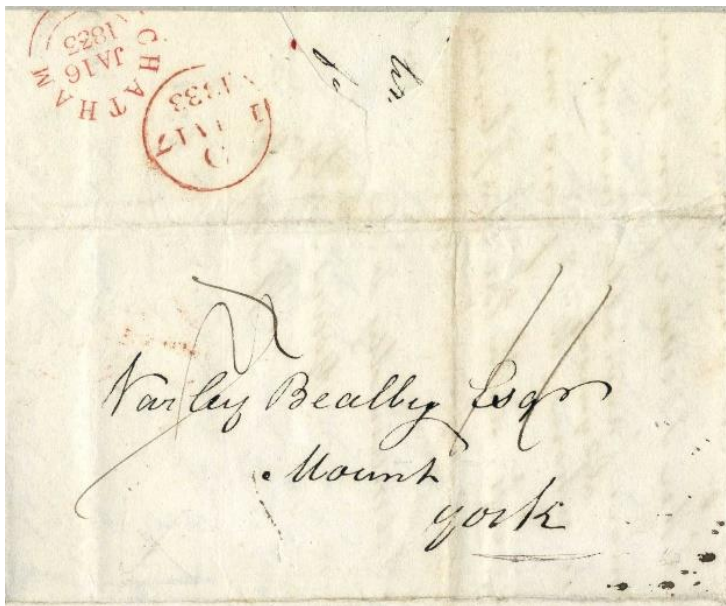 CHATHAM
JA 16
1833
JA 17
1833
Varley Bealby Esqr
Mount
York